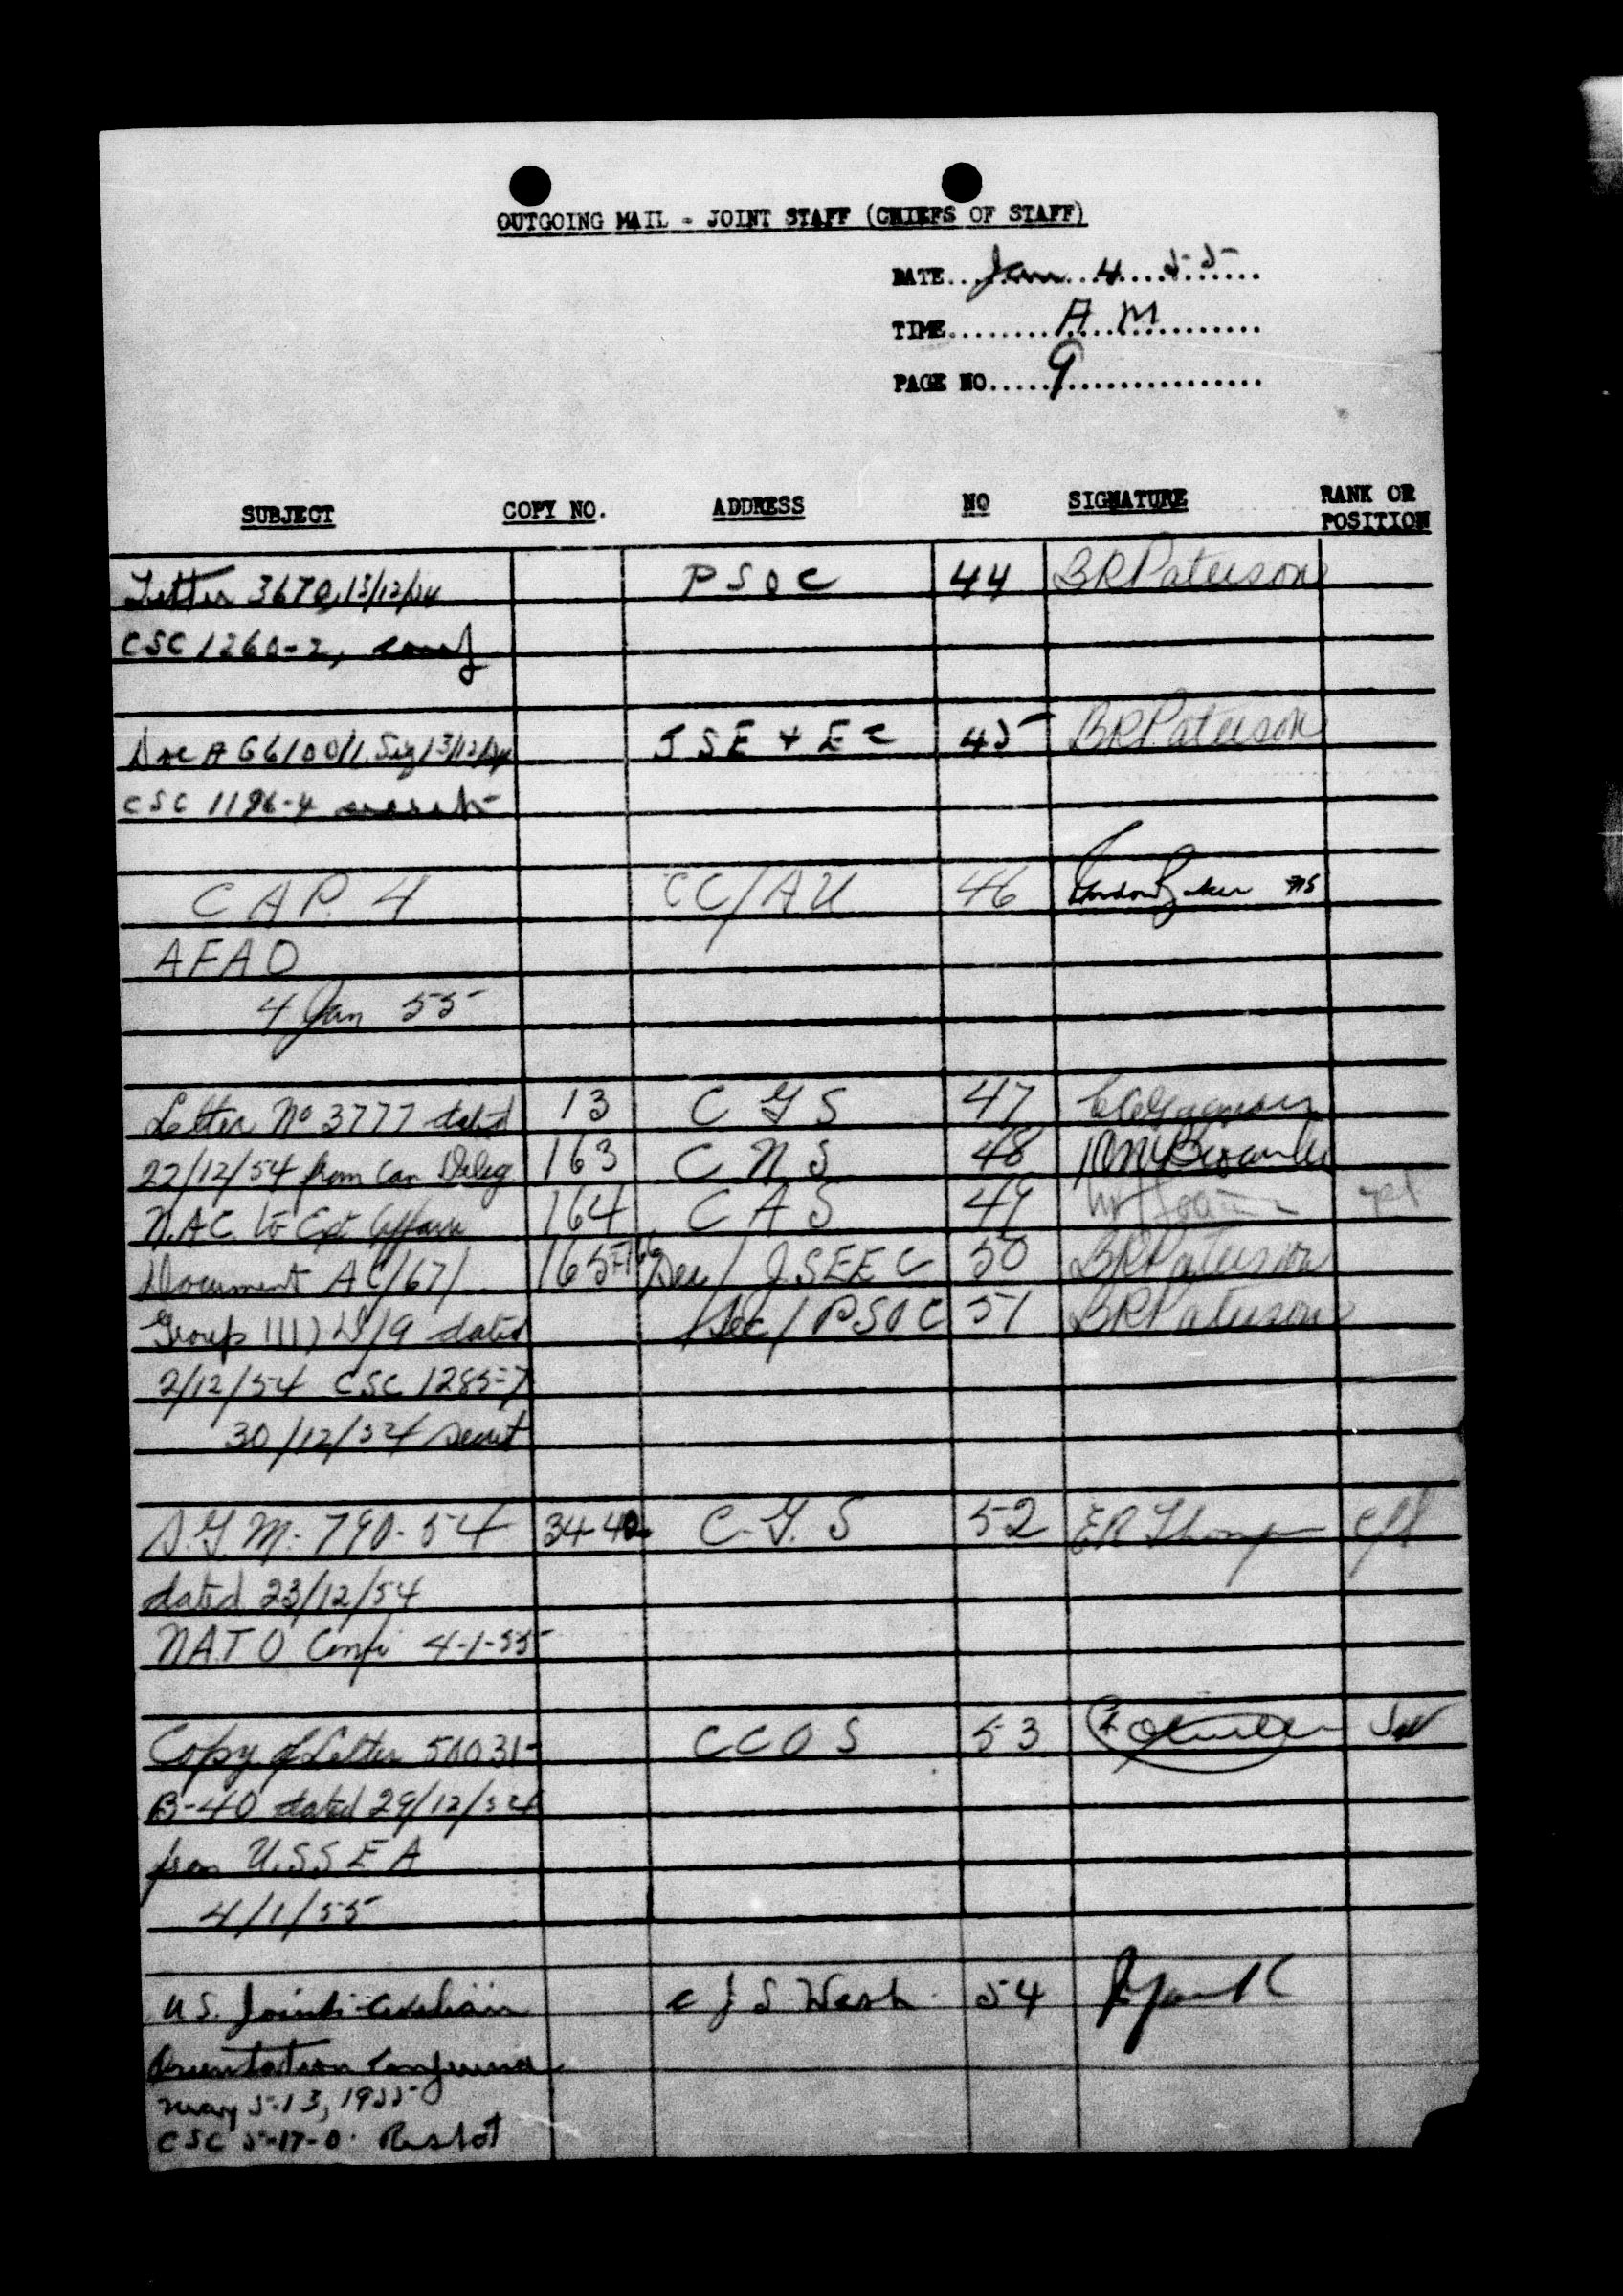 OUTGOING MAIL - JOINT STAFF (CHIEFS OF STAFF)
DATE...Jan...4....55......
TIME........A.M............
PAGE NO.....9................
SUBJECT COPY NO. ADDRESS NO SIGNATURE RANK OR POSITION
Letter 3670, 13/12/54 PSOC 44 BRPaterson
CSC 1260-2, conf
Doc AG6100/1. Sig 13/12/54 JSE + EC 45 BRPaterson
CSC 1196-4 secret
CAP. 4 CC/AU 46
AFAO
4 Jan 55
Letter No 3777 dated 13 CGS 47
22/12/54 from Can Deleg 163 CNS 48
N.A.C. to Ext Affairs 164 CAS 49
Document AC/67/ 165-166 Sec/ JSEEC 50 BRPaterson
Group 111) D/9 dated Sec/ PSOC 51 BRPaterson
2/12/54 CSC 1285-7
30/12/54 Secret
S.G.M.- 790-54 34-42 C.G.S 52 ER Thompson
dated 23/12/54
NATO Conf 4-1-55
Copy of Letter 50031- CCOS 53
B-40 dated 29/12/54
from U.S.S.E.A
4/1/55
U.S. Joint Civilian CJS Wash. 54
Orientation Conference
May 5-13, 1955
CSC 5-17-0. Restd